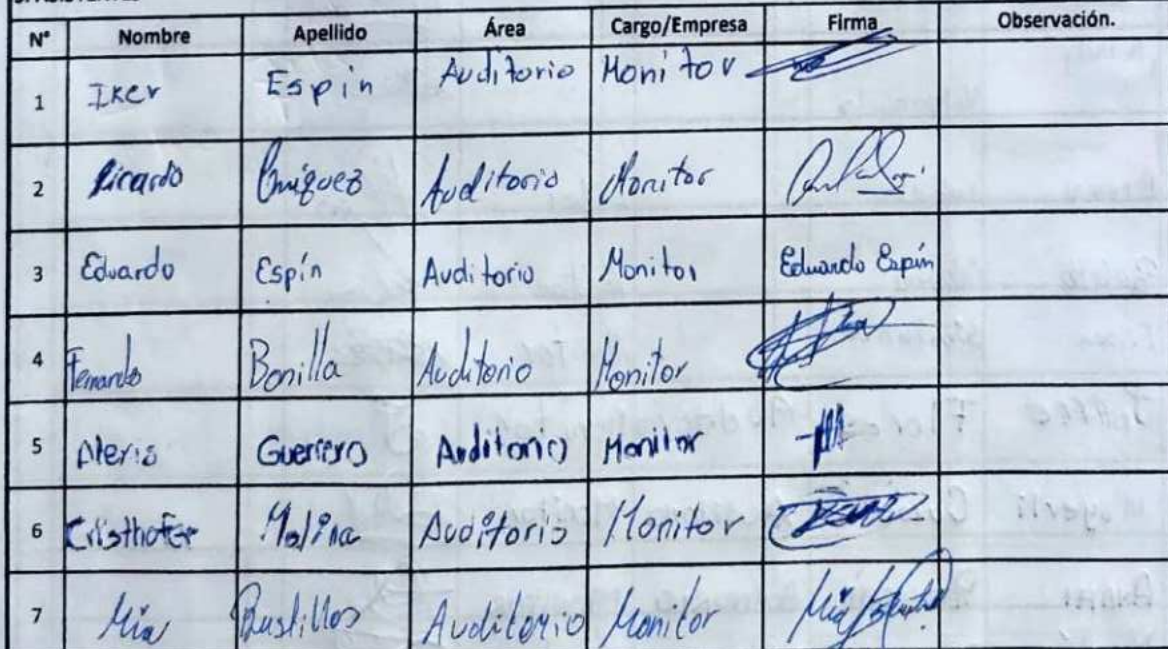 N° Nombre Apellido Área Cargo/Empresa Firma Observación.
1 Iker Espin Auditorio Monitor
2 Ricardo Auditorio Monitor
3 Eduardo Espín Auditorio Monitor Eduardo Espín
4 Fernando Bonilla Auditorio Monitor
5 Alexis Guerrero Auditorio Monitor
6 Cristhofer Molina Auditorio Monitor
7 Mia Bustillos Auditorio Monitor